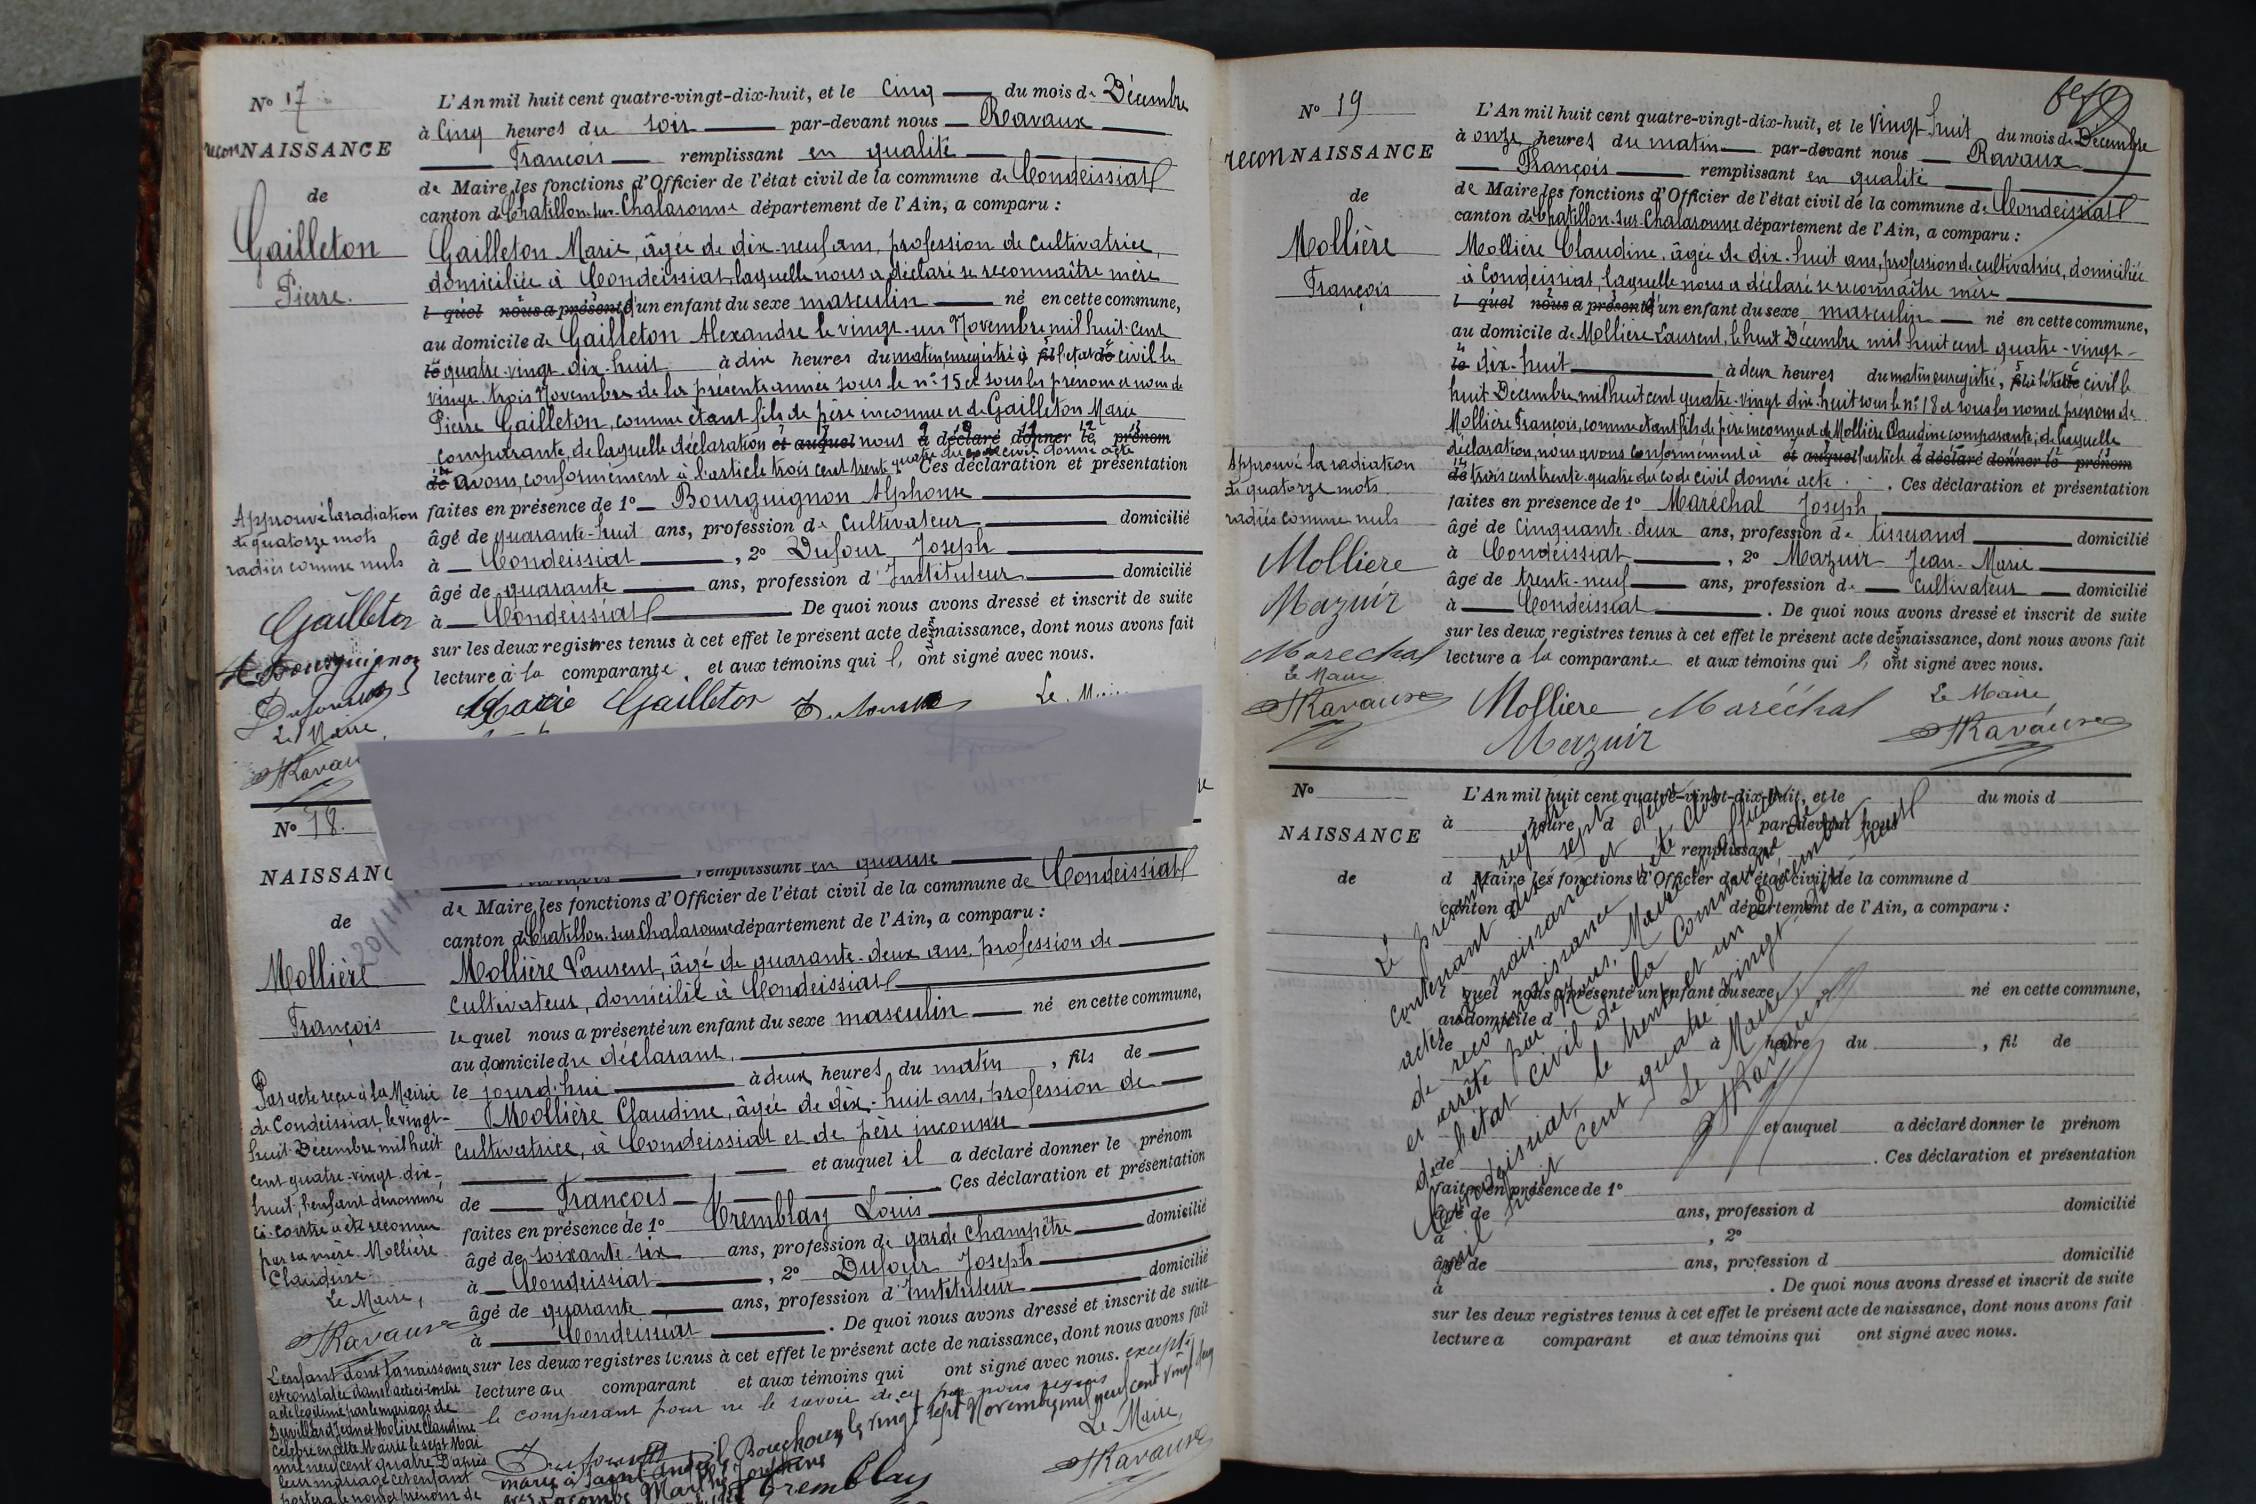 N° 17
reconNAISSANCE
de
Gailleton
Pierre.
L'An mil huit cent quatre-vingt-dix-huit, et le cinq du mois de Décembre
à Cinq heures du soir par-devant nous Ravaux
François remplissant en qualité
de Maire les fonctions d'Officier de l'état civil de la commune de Condeissiat
canton de Chatillon-sur-Chalaronne département de l'Ain, a comparu :
Gailleton Marie, âgée de dix-neuf ans, profession de cultivatrice,
domiciliée à Condeissiat, laquelle nous a déclaré se reconnaître mère
l quel nous a présenté d'un enfant du sexe masculin né en cette commune,
au domicile de Gailleton Alexandre le vingt-un Novembre mil huit-cent
le quatre-vingt-dix-huit à dix heures du matin, enregistré à fil l'état de civil le
vingt-trois Novembre de la présente année sous le n° 15 et sous les prénom et nom de
Pierre Gailleton, comme étant fils de père inconnu et de Gailleton Marie
comparante, de laquelle déclaration et auquel nous a déclaré donner le prénom
de avons, conformément à l'article trois cent trente quatre du code civil donné acte Ces déclaration et présentation
faites en présence de 1° Bourguignon Alphonse
âgé de quarante-huit ans, profession de cultivateur domicilié
à Condeissiat, 2° Dufour Joseph
âgé de quarante ans, profession d'Instituteur domicilié
à Condeissiat. De quoi nous avons dressé et inscrit de suite
sur les deux registres tenus à cet effet le présent acte de naissance, dont nous avons fait
lecture à la comparante, et aux témoins qui l, ont signé avec nous.
Approuvé la radiation
de quatorze mots
radiés comme nuls
Gailleton
Bourguignon
Dufour
Le Maire,
Ravaux
Marie Gailleton Dufour Le Maire
N° 18.
NAISSANC
de
Mollière
François
remplissant en qualité
de Maire les fonctions d'Officier de l'état civil de la commune de Condeissiat
canton de Chatillon-sur-Chalaronne département de l'Ain, a comparu :
Mollière Laurent, âgé de quarante-deux ans, profession de
cultivateur, domicilié à Condeissiat
lequel nous a présenté un enfant du sexe masculin né en cette commune,
au domicile du déclarant,
le jourd'hui à deux heures du matin, fils de
Mollière Claudine, âgée de dix-huit ans, profession de
cultivatrice, à Condeissiat et de père inconnu
et auquel il a déclaré donner le prénom
de François. Ces déclaration et présentation
faites en présence de 1° Tremblay Louis
âgé de soixante six ans, profession de garde champêtre domicilié
à Condeissiat, 2° Dufour Joseph
âgé de quarante ans, profession d'Instituteur domicilié
à Condeissiat. De quoi nous avons dressé et inscrit de suite
sur les deux registres tenus à cet effet le présent acte de naissance, dont nous avons fait
lecture au comparant et aux témoins qui ont signé avec nous. excepté
le comparant pour ne le savoir de ce par nous requis
Par acte reçu à la Mairie
de Condeissiat, le vingt-
huit Décembre mil huit
cent quatre-vingt-dix-
huit, l'enfant dénommé
ci-contre a été reconnu
par sa mère Mollière
Claudine.
Le Maire,
Ravaux
L'enfant dont la naissance
est constatée dans l'acte ci-contre
a été légitimé par le mariage de
Duvillard Jean et Molière Claudine
célébré en cette Mairie le sept Mai
mil neuf cent quatre. D'après
leur mariage cet enfant
portera le nom et prénom de
Dufour
Bouchoux, le vingt sept Novembre mil neuf cent vingt deux
marié à Saint André
Marthe Joséphine
Tremblay
Le Maire,
Ravaux
N° 19
reconNAISSANCE
de
Mollière
François
L'An mil huit cent quatre-vingt-dix-huit, et le Vingt-huit du mois de Décembre
à onze heures du matin par-devant nous Ravaux
François remplissant en qualité
de Maire les fonctions d'Officier de l'état civil de la commune de Condeissiat
canton de Chatillon-sur-Chalaronne département de l'Ain, a comparu :
Mollière Claudine, âgée de dix-huit ans, profession de cultivatrice, domiciliée
à Condeissiat, laquelle nous a déclaré se reconnaître mère
l quel nous a présenté d'un enfant du sexe masculin né en cette commune,
au domicile de Mollière Laurent, le huit Décembre mil huit cent quatre-vingt-
le dix-huit à deux heures du matin enregistré, fil à l'état de civil le
huit Décembre mil huit cent quatre-vingt dix-huit sous le n° 18 et sous les nom et prénom de
Mollière François, comme étant fils de père inconnu et de Mollière Claudine comparante; de laquelle
déclaration, nous avons conformément à et auquel l'article a déclaré donner le prénom
de trois cent trente-quatre du code civil donné acte. Ces déclaration et présentation
faites en présence de 1° Maréchal Joseph
âgé de Cinquante-deux ans, profession de tisserand domicilié
à Condeissiat, 2° Mazuir Jean-Marie
âgé de trente-neuf ans, profession de cultivateur domicilié
à Condeissiat. De quoi nous avons dressé et inscrit de suite
sur les deux registres tenus à cet effet le présent acte de naissance, dont nous avons fait
lecture a la comparante et aux témoins qui l, ont signé avec nous.
Approuvé la radiation
de quatorze mots
radiés comme nuls
Molliere
Mazuir
Marechal
Le Maire
Ravaux
Molliere Maréchal Le Maire
Mazuir Ravaux
N°
NAISSANCE
de
L'An mil huit cent quatre-vingt-dix-huit, et le du mois d
à heure d par-devant nous
remplissant
d Maire les fonctions d'Officier de l'état civil de la commune d
canton d département de l'Ain, a comparu :
l quel nous a présenté un enfant du sexe né en cette commune,
au domicile d
le à heure du , fil de
et auquel a déclaré donner le prénom
de . Ces déclaration et présentation
faites en présence de 1°
âgé de ans, profession d domicilié
à , 2°
âgé de ans, profession d domicilié
à . De quoi nous avons dressé et inscrit de suite
sur les deux registres tenus à cet effet le présent acte de naissance, dont nous avons fait
lecture a comparant et aux témoins qui ont signé avec nous.
Le présent registre
contenant dix sept
actes de naissance et deux
de reconnaissance a été clos
et arrêté par Nous, Maire, officier
de l'état civil de la Commune de
Condeissiat, le trente et un Décembre
mil huit cent quatre vingt dix-huit
Le Maire
Ravaux